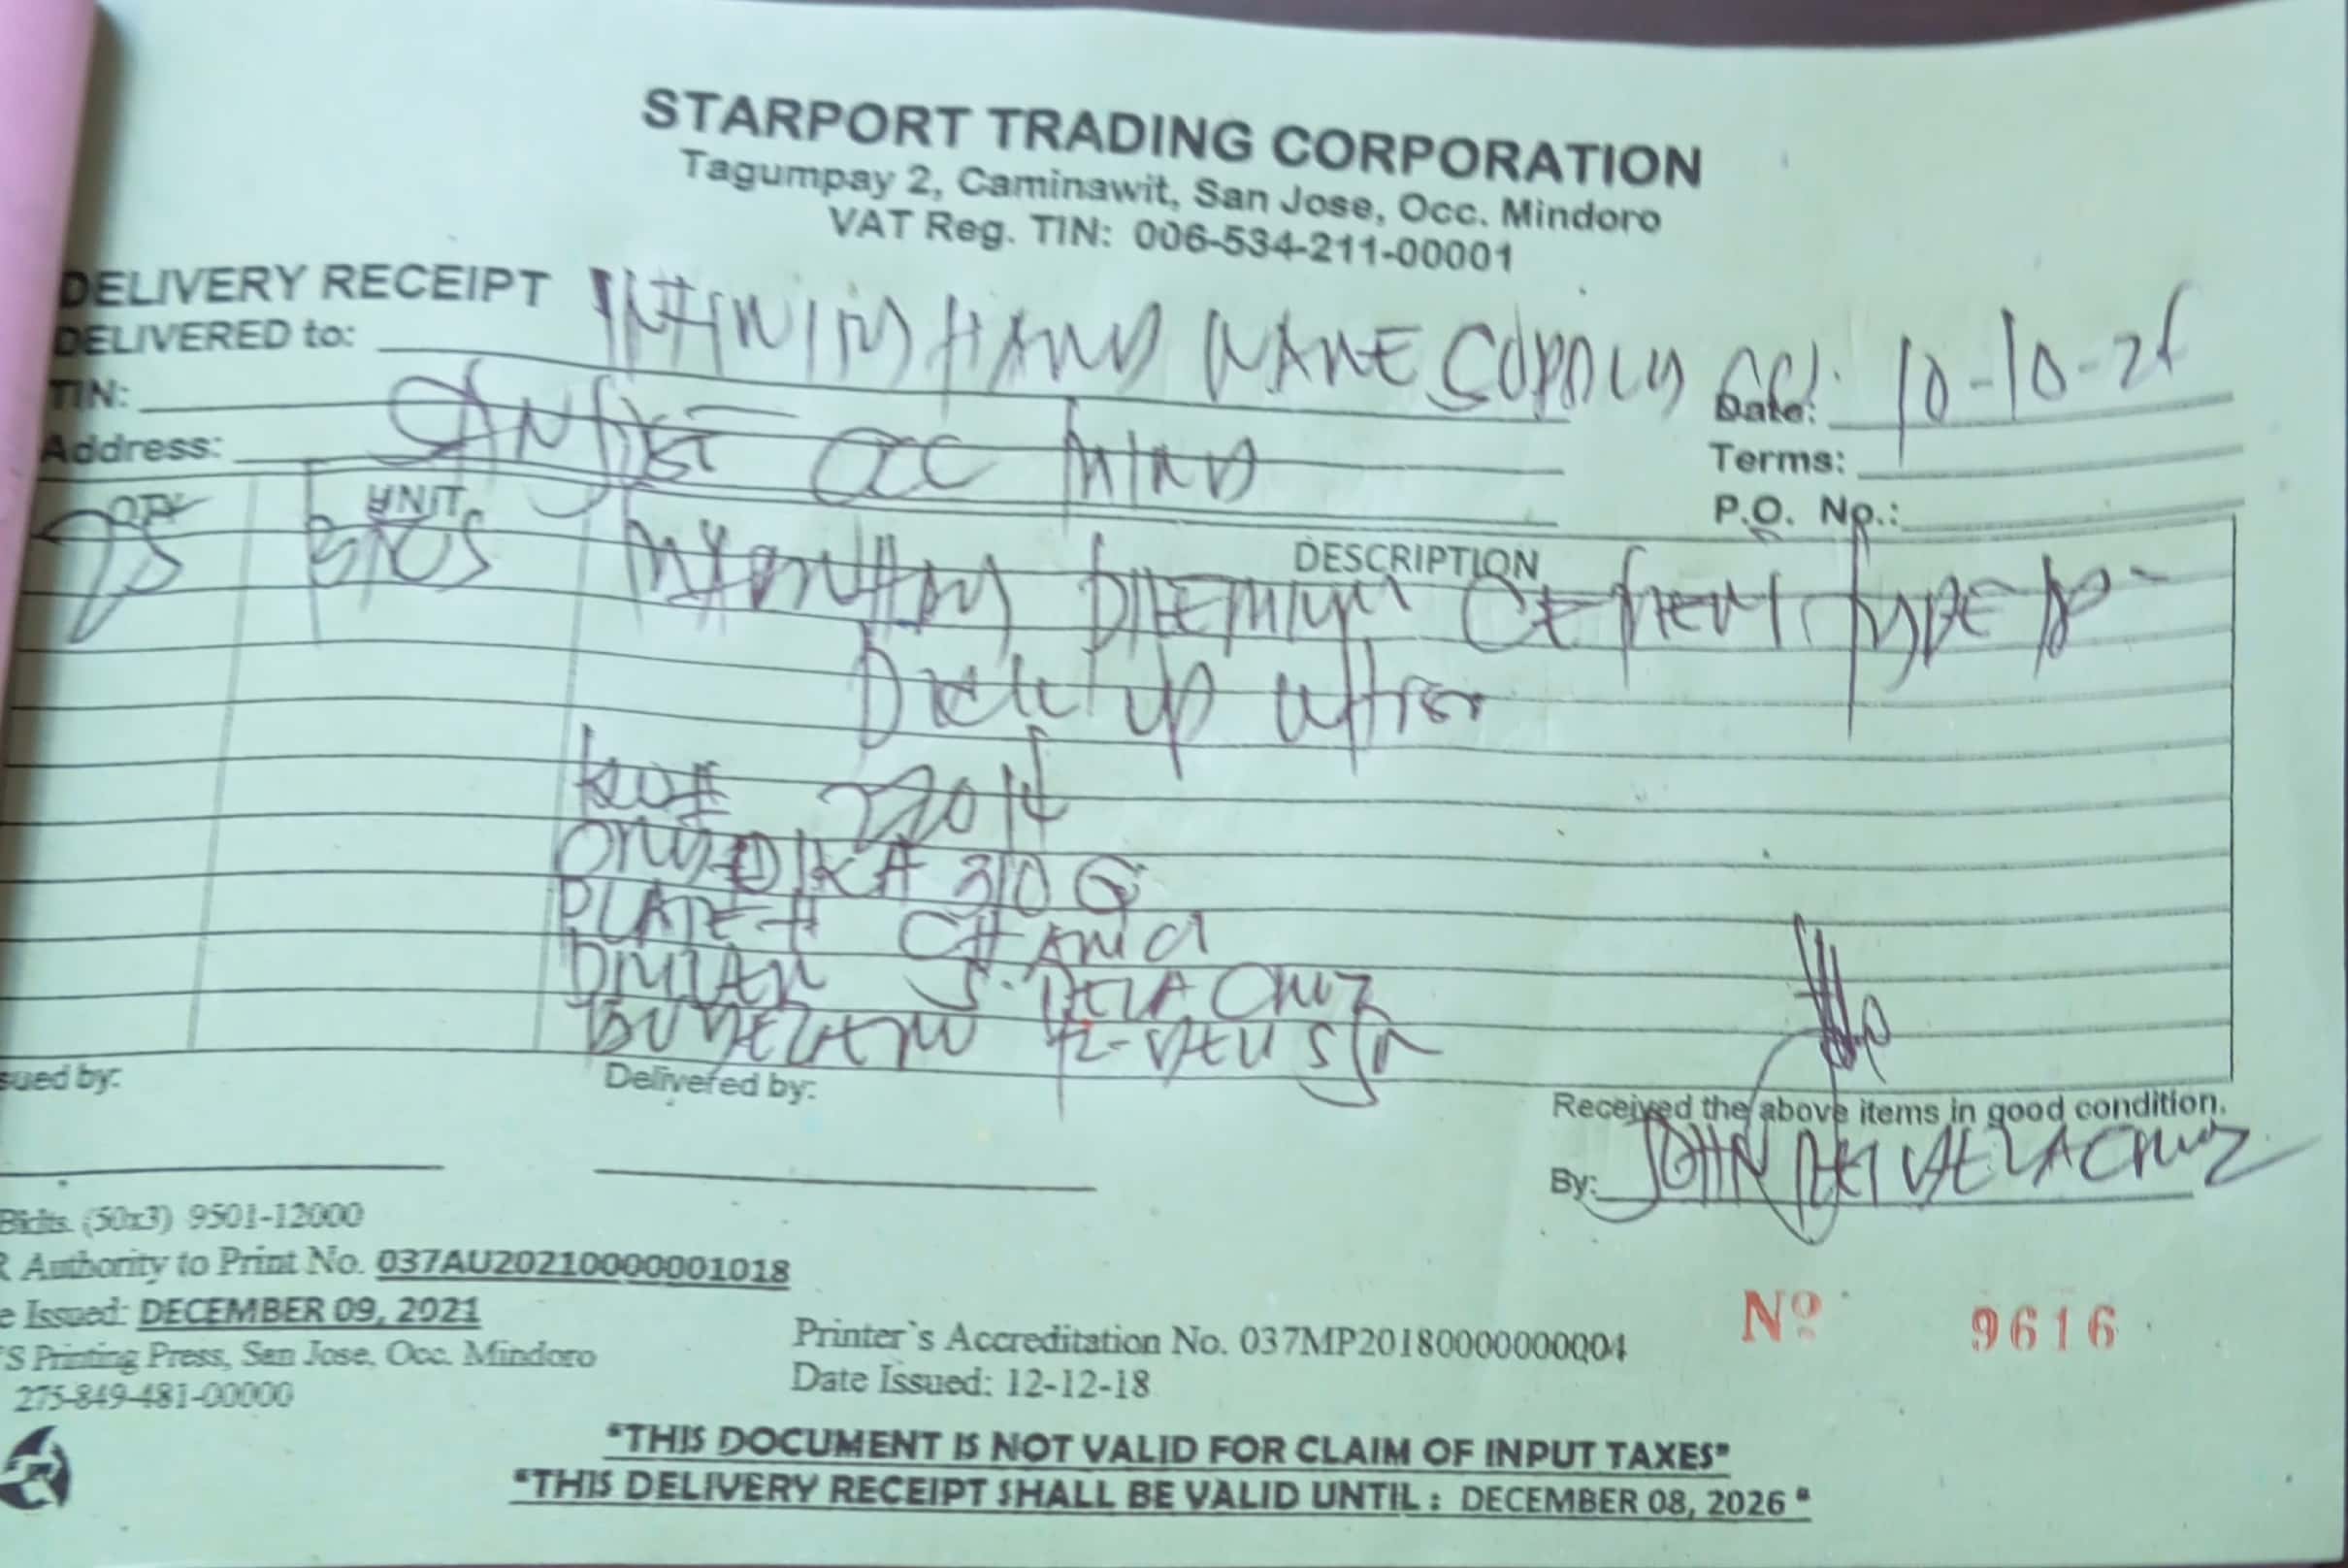 STARPORT TRADING CORPORATION
Tagumpay 2, Caminawit, San Jose, Occ. Mindoro
VAT Reg. TIN: 006-534-211-00001
DELIVERY RECEIPT
DELIVERED to: HARDWARE SUPPLY
Date: 10-10-25
TIN:
Address: SAN JOSE OCC MIND
Terms:
P.O. No.:
QTY UNIT DESCRIPTION
75 BAGS PREMIUM CEMENT TYPE
Pick up
2014
310 G
PLATE #
DRIVER J. DELA CRUZ
sued by:
Delivered by:
Received the above items in good condition.
By: JOHN DELA CRUZ
Bklts. (50x3) 9501-12000
R Authority to Print No. 037AU20210000001018
e Issued: DECEMBER 09, 2021
S Printing Press, San Jose, Occ. Mindoro
275-849-481-00000
Printer's Accreditation No. 037MP20180000000004
Date Issued: 12-12-18
Nº 9616
"THIS DOCUMENT IS NOT VALID FOR CLAIM OF INPUT TAXES"
"THIS DELIVERY RECEIPT SHALL BE VALID UNTIL : DECEMBER 08, 2026"